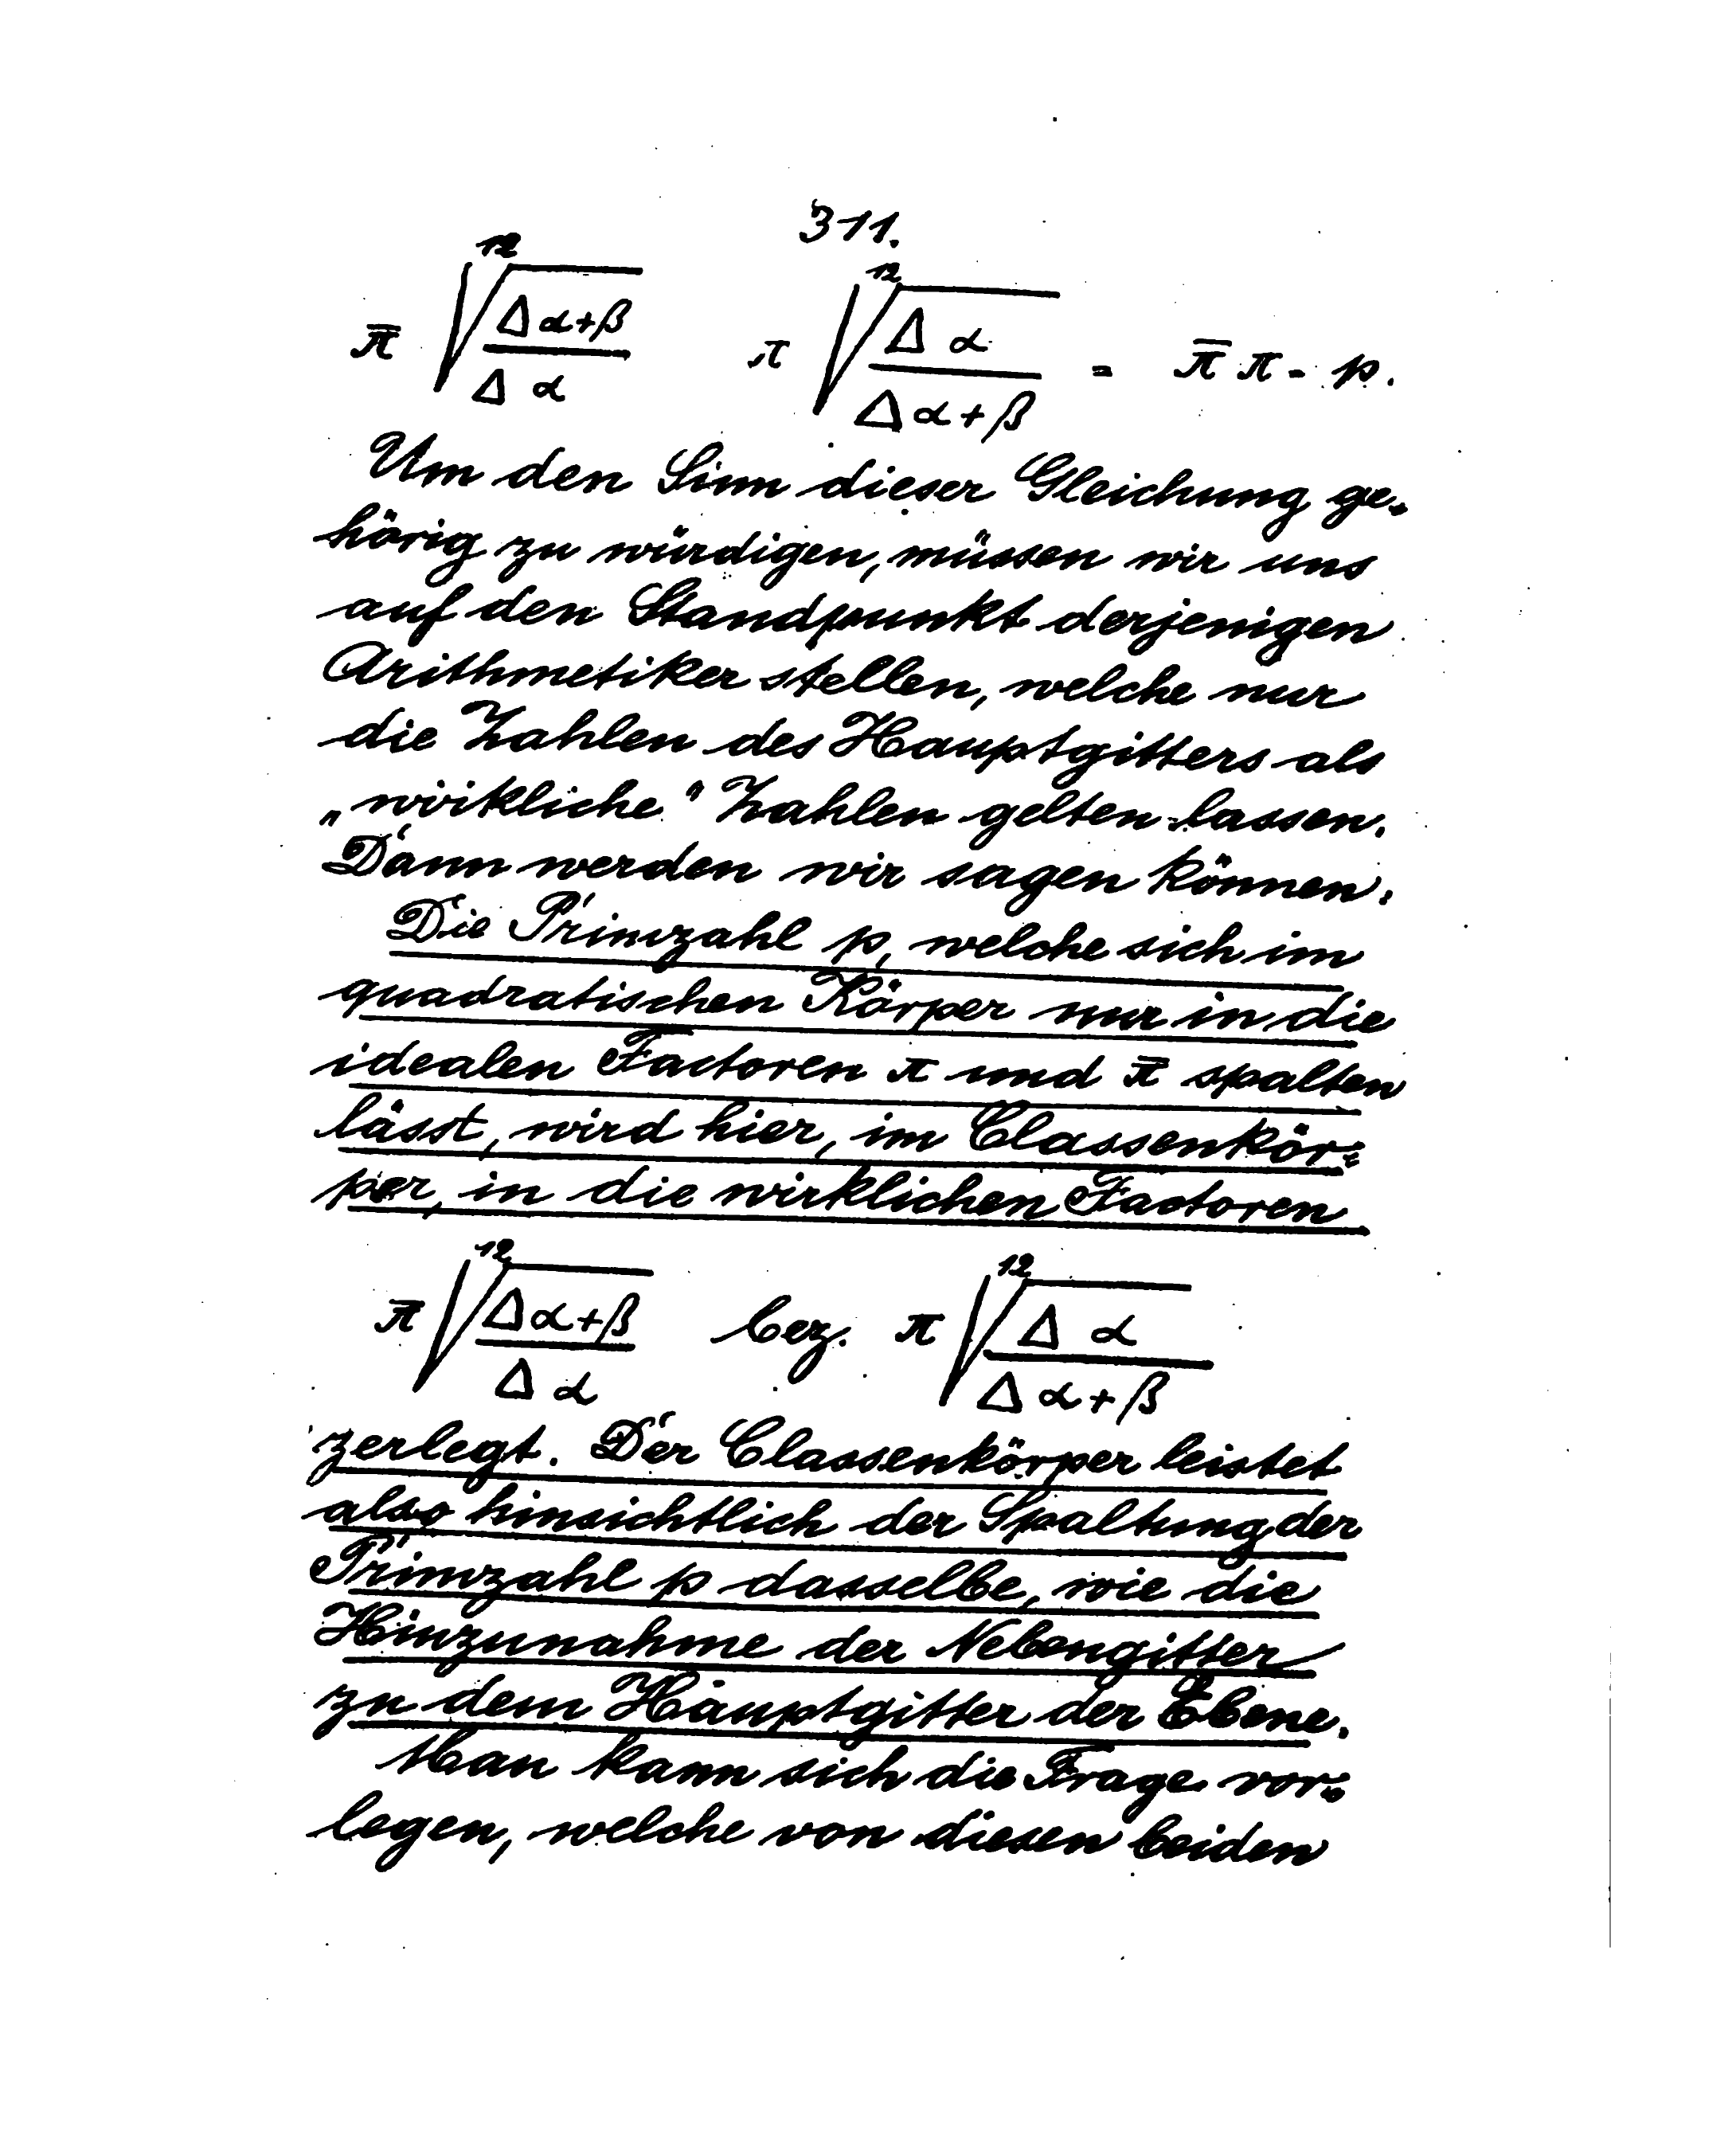 311.
π̄ \sqrt[12]{\frac{Δ α+β}{Δ α}} π \sqrt[12]{\frac{Δ α}{Δ α+β}} = π̄ π = p.
Um den Sinn dieser Gleichung ge-
hörig zu würdigen, müssen wir uns
auf den Standpunkt derjenigen
Arithmetiker stellen, welche nur
die Zahlen des Hauptgitters als
„wirkliche" Zahlen gelten lassen.
Dann werden wir sagen können:
Die Primzahl p, welche sich im
quadratischen Körper nur in die
idealen Factoren π und π̄ spalten
lässt, wird hier, im Classenkör-
per, in die wirklichen Factoren
π̄ \sqrt[12]{\frac{Δ α+β}{Δ α}} bez. π \sqrt[12]{\frac{Δ α}{Δ α+β}}
zerlegt. Der Classenkörper leistet
also hinsichtlich der Spaltung der
Primzahl p dasselbe, wie die
Hinzunahme der Nebengitter
zu dem Hauptgitter der Ebene.
Man kann sich die Frage vor-
legen, welche von diesen beiden